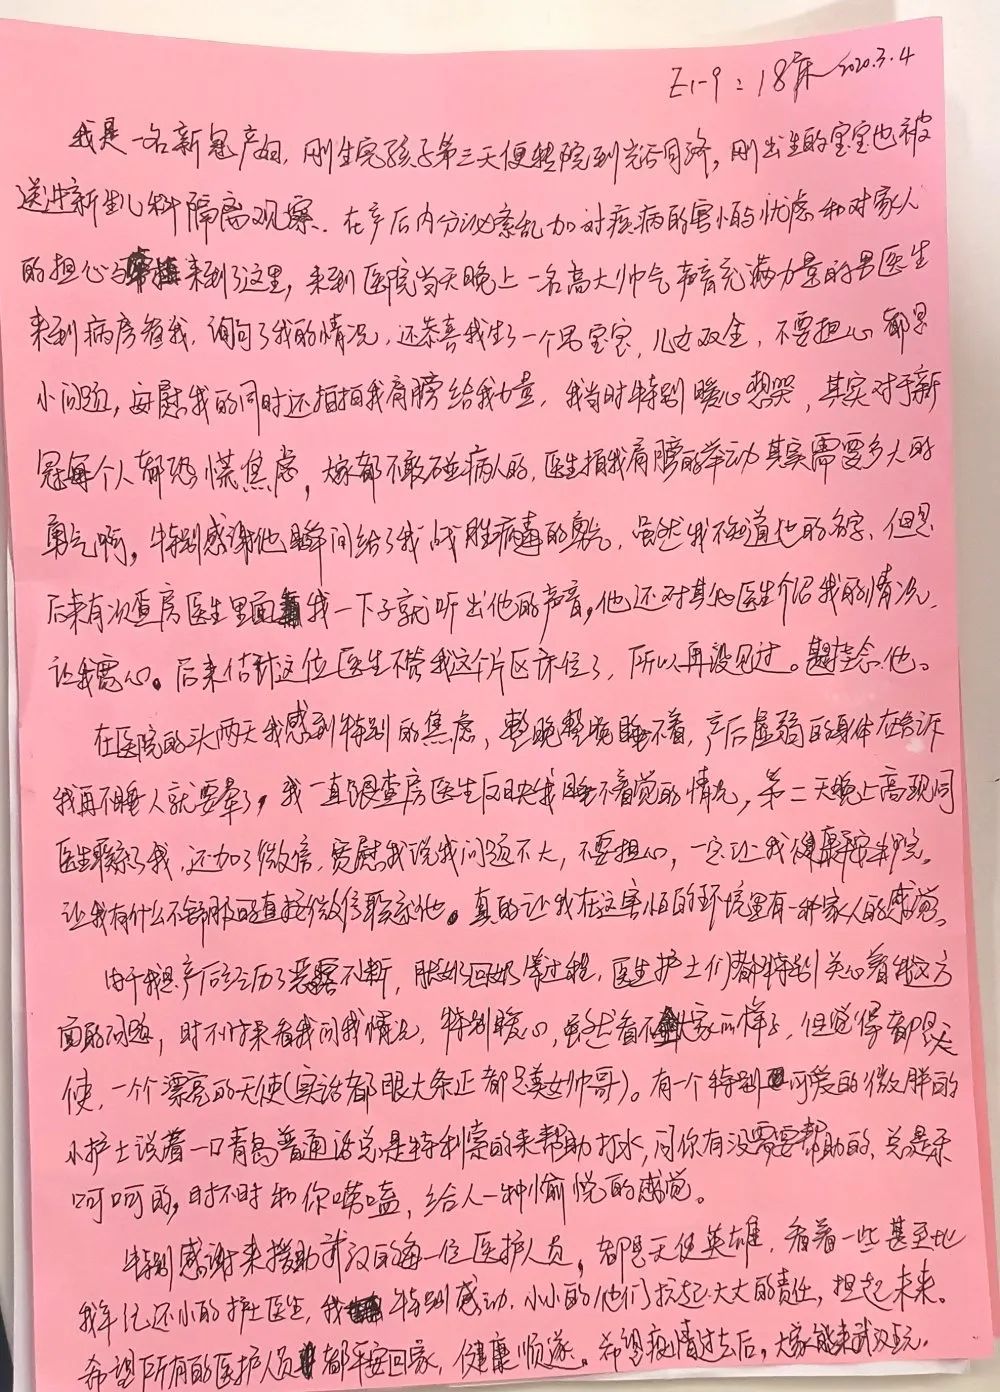 E1-9：18床 2020.3.4
我是一名新冠产妇，刚生完孩子第三天便转院到光谷同济，刚出生的宝宝也被
送进新生儿科隔离观察．在产后内分泌紊乱加对疾病的害怕与忧虑和对家人
的担心与来到了这里，来到医院当天晚上一名高大帅气声音充满力量的男医生
来到病房看我，询问了我的情况，还恭喜我生了一个男宝宝，儿女双全，不要担心 都是
小问题，安慰我的同时还拍拍我肩膀给我力量，我当时特别暖心想哭，其实对于新
冠每个人都恐慌焦虑，大家都不敢碰病人的，医生拍我肩膀的举动其实需要多大的
勇气啊，特别感谢他瞬间给了我战胜病毒的勇气，虽然我不知道他的名字，但是
后来有次查房医生里面我一下子就听出他的声音，他还对其他医生介绍我的情况，
让我宽心。后来估计这位医生不管我这个片区床位了，所以再没见过。挺挂念他。
在医院的头两天我感到特别的焦虑，整晚整晚睡不着，产后虚弱的身体在告诉
我再不睡人就要晕了，我一直跟查房医生反映我睡不着觉的情况，第二天晚上高现同
医生联系了我，还加了微信，宽慰我说我问题不大，不要担心，一定让我健康平安出院。
让我有什么不舒服的直接微信联系他。真的让我在这害怕的环境里有一种家人的感觉。
由于我是产后经历了恶露不断，胀奶回奶等过程，医生护士们都特别关心着我这方
面的问题，时不时来看我问我情况，特别暖心，虽然看不大家的样子，但觉得都是天
使，一个个漂亮的天使（实话都眼大条正都是美女帅哥）。有一个特别可爱的微胖的
小护士说着一口青岛普通话总是特利索的来帮助打水，问你有没需要帮助的，总是乐
呵呵的，时不时和你唠嗑，给人一种愉悦的感觉。
特别感谢来援助武汉的每一位医护人员，都是天使英雄，看着一些甚至比
我年纪还小的护士医生，我特别感动，小小的他们扛起大大的责任，担起未来。
希望所有的医护人员都平安回家，健康顺遂。希望疫情过去后，大家能来武汉玩．